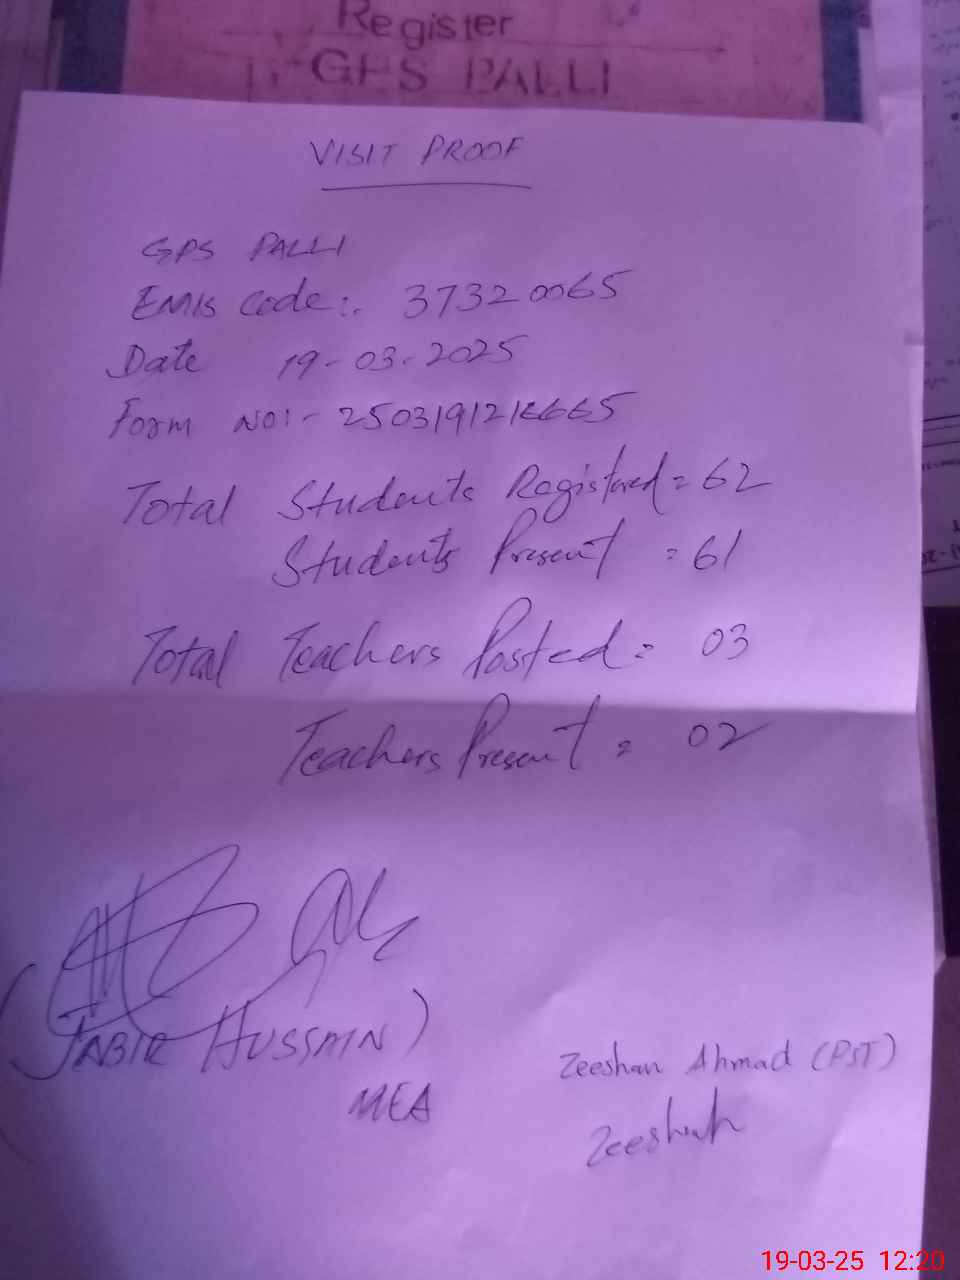 Register
GPS PALLI
VISIT PROOF
GPS PALLI
EMIS Code:. 37320065
Date 19-03-2025
Form NO:-
Total Students Registered = 62
Students Present = 61
Total Teachers Posted = 03
Teachers Present = 02
(JABIR HUSSAIN)
MEA
Zeeshan Ahmad (PST)
Zeeshan
19-03-25 12:20